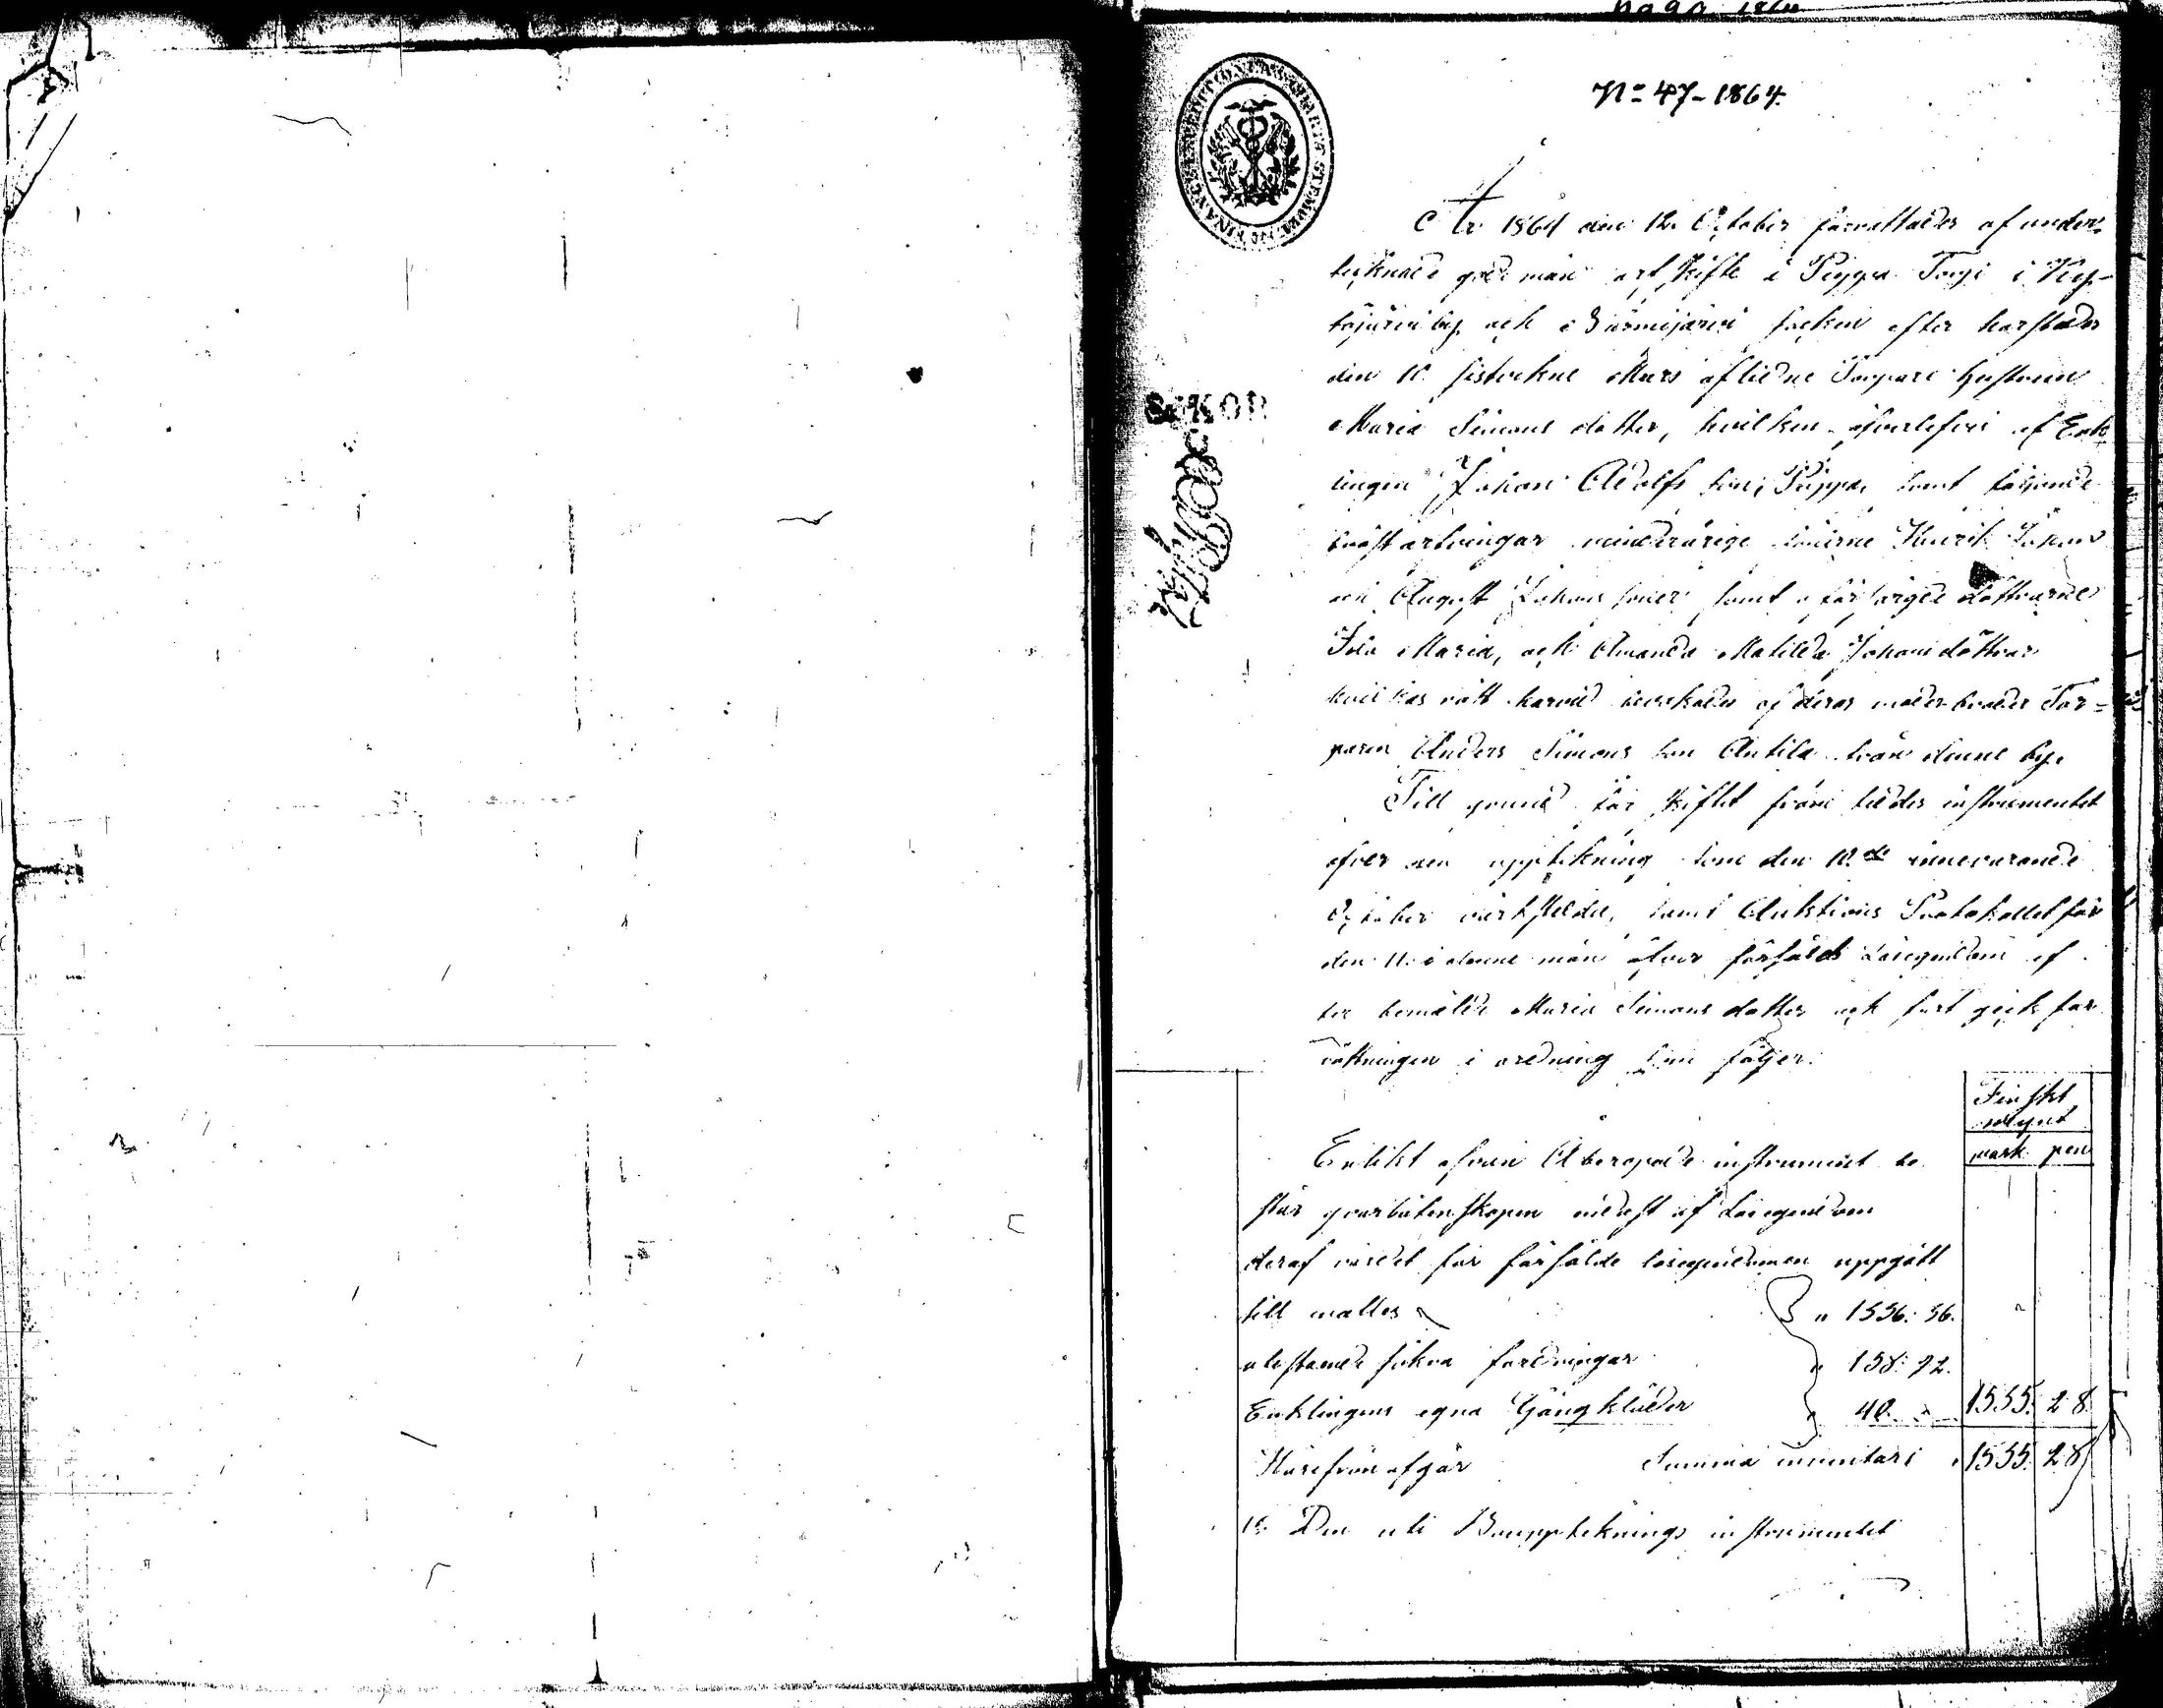 No 47-1864.
År 1864 den 12. October förrättades af under-
tecknade gode män arfskifte å Pyppa Torp i
by och Nurmijärvi socken efter härstädes
den 10. sistvekne Mars aflidne Torpare hustrun
Maria Simons dotter, hvilken öfverlefves af Enk
lingen Johan Adolfs son, Pyppa, samt följande
bröstarfvingar minderårige sönerne Henrik Johan
och August Johans söner samt oförsörgde döttrarne
Ida Maria, och Amanda Matilda Johans döttrar
hvilkas rätt härvid bevakades af deras moder broder Tor-
paren Anders Simons son Antila från denne by.
Till grund för skiftet framteddes instrumentet
öfver den upptekning som den 10.de innevarande
October värkstäldes, samt Auktions Protokollet för
den 11. i denne mån öfver försålds Lösegendom ef
ter bemälde Maria Simons dotter och fort gick för
rättningen i ordning som följer.
Finskt
mynt
mark pen
Enlikt ofvan Åberopade instrument be
står qvarlåtenskapen endast af Lösegendom
deraf värdet för försålde lösegendomen uppgått
till mattes " 1356: 56.
utestående säkra fordringar " 158: 72.
Enklingens egna Gångkläder " 40. " 1555. 28.
Härifrån afgår Summa inventari 1555. 28
1o Den uti Bouppteknings instrumentet